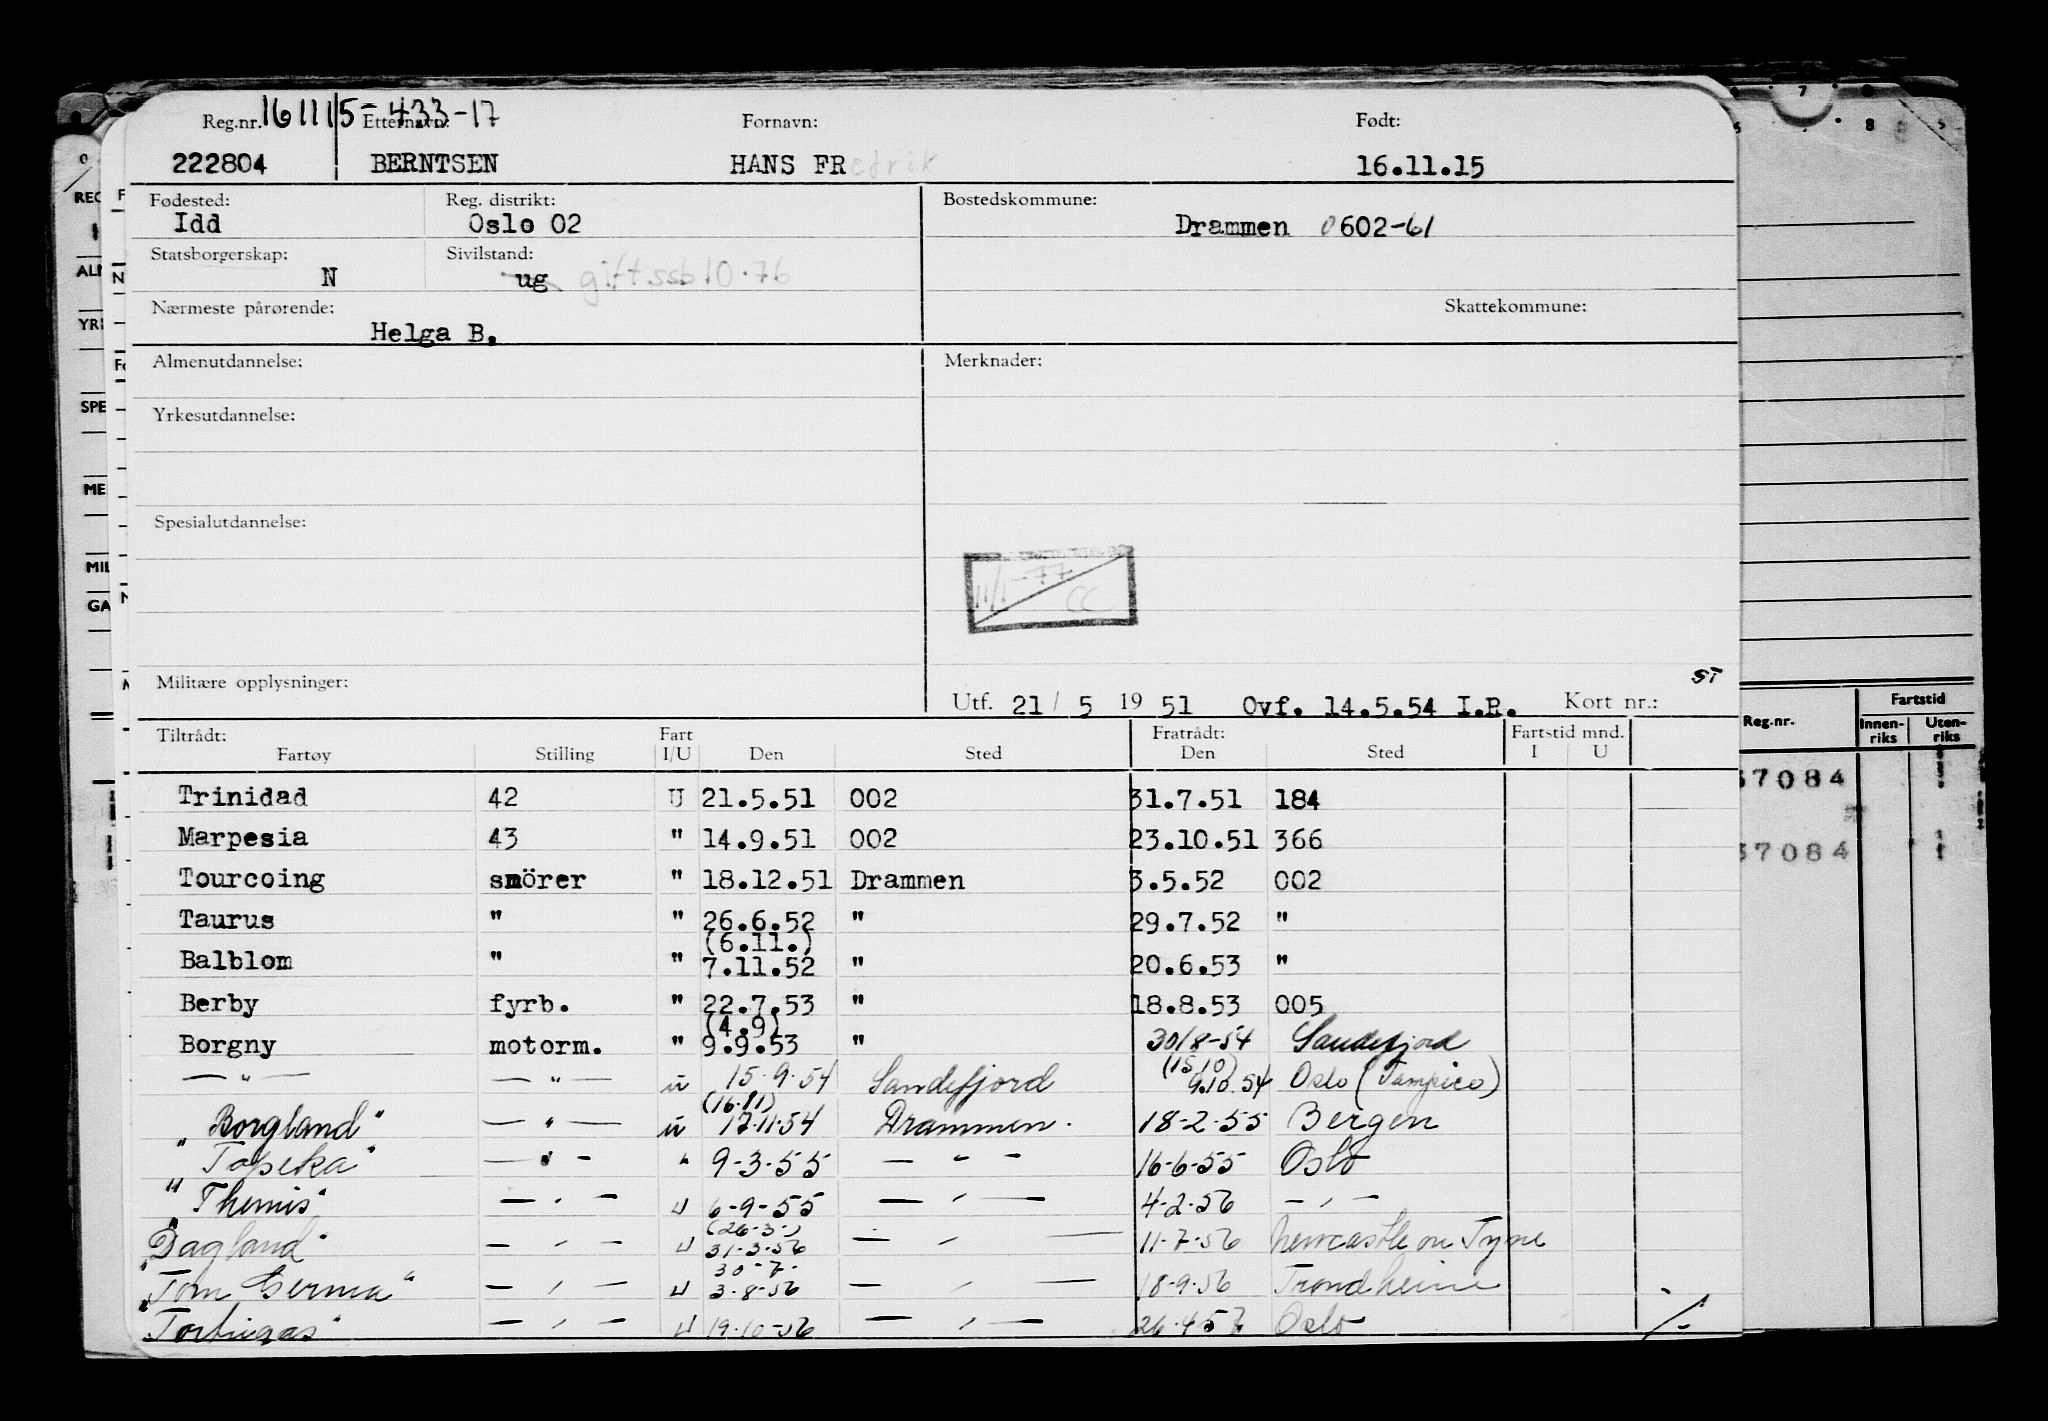 161115-433-17
Reg.nr. Etternavn: Fornavn: Født:
222804 BERNTSEN HANS FRedrik 16.11.15
Fødested: Reg. distrikt: Bostedskommune:
Idd Oslo 02 Drammen 0602-61
Statsborgerskap: Sivilstand:
N ug gift ssb 10.76
Nærmeste pårørende: Skattekommune:
Helga B.
Almenutdannelse: Merknader:
Yrkesutdannelse:
Spesialutdannelse:
11/1-77 CC
Militære opplysninger: ST
Utf. 21/ 5 19 51 Ovf. 14.5.54 I.R. Kort nr.:
Tiltrådt: Fart Fratrådt: Fartstid mnd.
Fartøy Stilling I/U Den Sted Den Sted I U
Trinidad 42 U 21.5.51 002 31.7.51 184
Marpesia 43 " 14.9.51 002 23.10.51 366
Tourcoing smörer " 18.12.51 Drammen 3.5.52 002
Taurus " " 26.6.52 " 29.7.52 "
(6.11.)
Balblom " " 7.11.52 " 20.6.53 "
Berby fyrb. " 22.7.53 " 18.8.53 005
(4.9)
Borgny motorm. " 9.9.53 " 30/8-54 Sandefjord
(15/10)
— " — — " — u 15.9.54 Sandefjord 9.10.54 Oslo (Tampico)
(16.11)
"Borgland" — " — u 17.11.54 Drammen. 18-2-55 Bergen
"Topeka" — " — " 9-3-55 — " — 16-6-55 Oslo
"Themis" — " — u 6-9-55 — " — 4-2-56 — " —
(26-3-)
"Dagland" — " — u 31-3-56 — " — 11-7-56 Newcastle on Tyne
30-7-
"Tom Germa" — " — u 3-8-56 — " — 18-9-56 Trondheim
"Tortugas" — " — u 19-10-56 — " — 26-4-57 Oslo
REG
ALM
YRK
SPE
MIL
GA
7 8
Reg.nr. Fartstid
Innenriks Utenriks
37084
37084